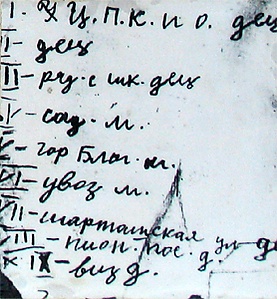 I. У Ц. П. К. и О. дец
II - дец
III - рду - с шк. дец
IV - сад - м.
V - гор Благ - м.
VI - увоз м.
VII - шарташская ул д
VIII - пион. пос. д.
IX - виз д.